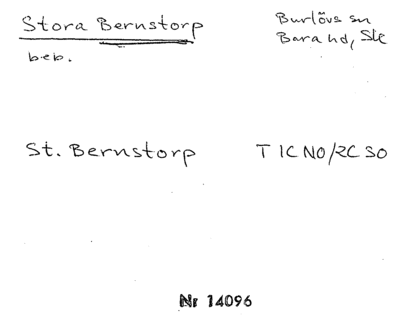 Stora Bernstorp
Burlövs sn
Bara hd, Sk
beb.
St. Bernstorp
T 1C NO/2C SO
Nr 14096